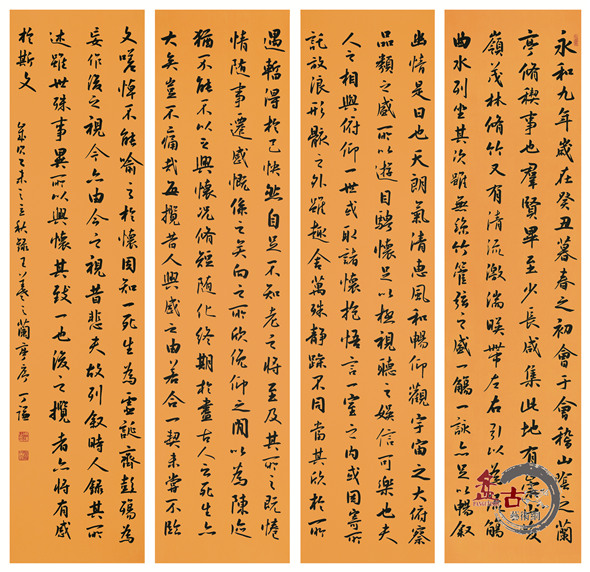 永和九年歲在癸丑暮春之初會于會稽山陰之蘭
亭脩稧事也羣賢畢至少長咸集此地有崇山峻
嶺茂林脩竹又有清流激湍暎帶左右引以為流觴
曲水列坐其次雖無絲竹管弦之盛一觴一詠亦足以暢敘
幽情是日也天朗氣清惠風和暢仰觀宇宙之大俯察
品類之盛所以遊目騁懷足以極視聽之娛信可樂也夫
人之相與俯仰一世或取諸懷抱悟言一室之內或因寄所
託放浪形骸之外雖趣舍萬殊靜躁不同當其欣於所
遇暫得於己快然自足不知老之將至及其所之既惓
情隨事遷感慨係之矣向之所欣俛仰之間以為陳迹
猶不能不以之興懷況脩短隨化終期於盡古人云死生亦
大矣豈不痛哉每攬昔人興感之由若合一契未嘗不臨
文嗟悼不能喻之於懷固知一死生為虛誕齊彭殤為
妄作後之視今亦由今之視昔悲夫故列敘時人錄其所
述雖世殊事異所以興懷其致一也後之攬者亦將有感
於斯文
歲次乙未之立秋錄王羲之蘭亭序
盘古
藝術網